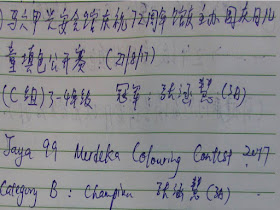 马六甲兴安会馆庆祝72周年馆庆主办国庆日儿
童填色公开赛 : (27/8/17)
(C 组) 3-4年级 冠军 : 张涵慧
Jaya 99 Merdeka Colouring Contest 2017
Category B : Champion 张涵慧